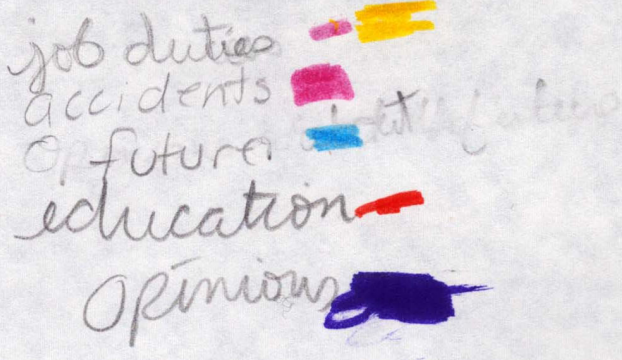 job duties
accidents
future
education
opinions